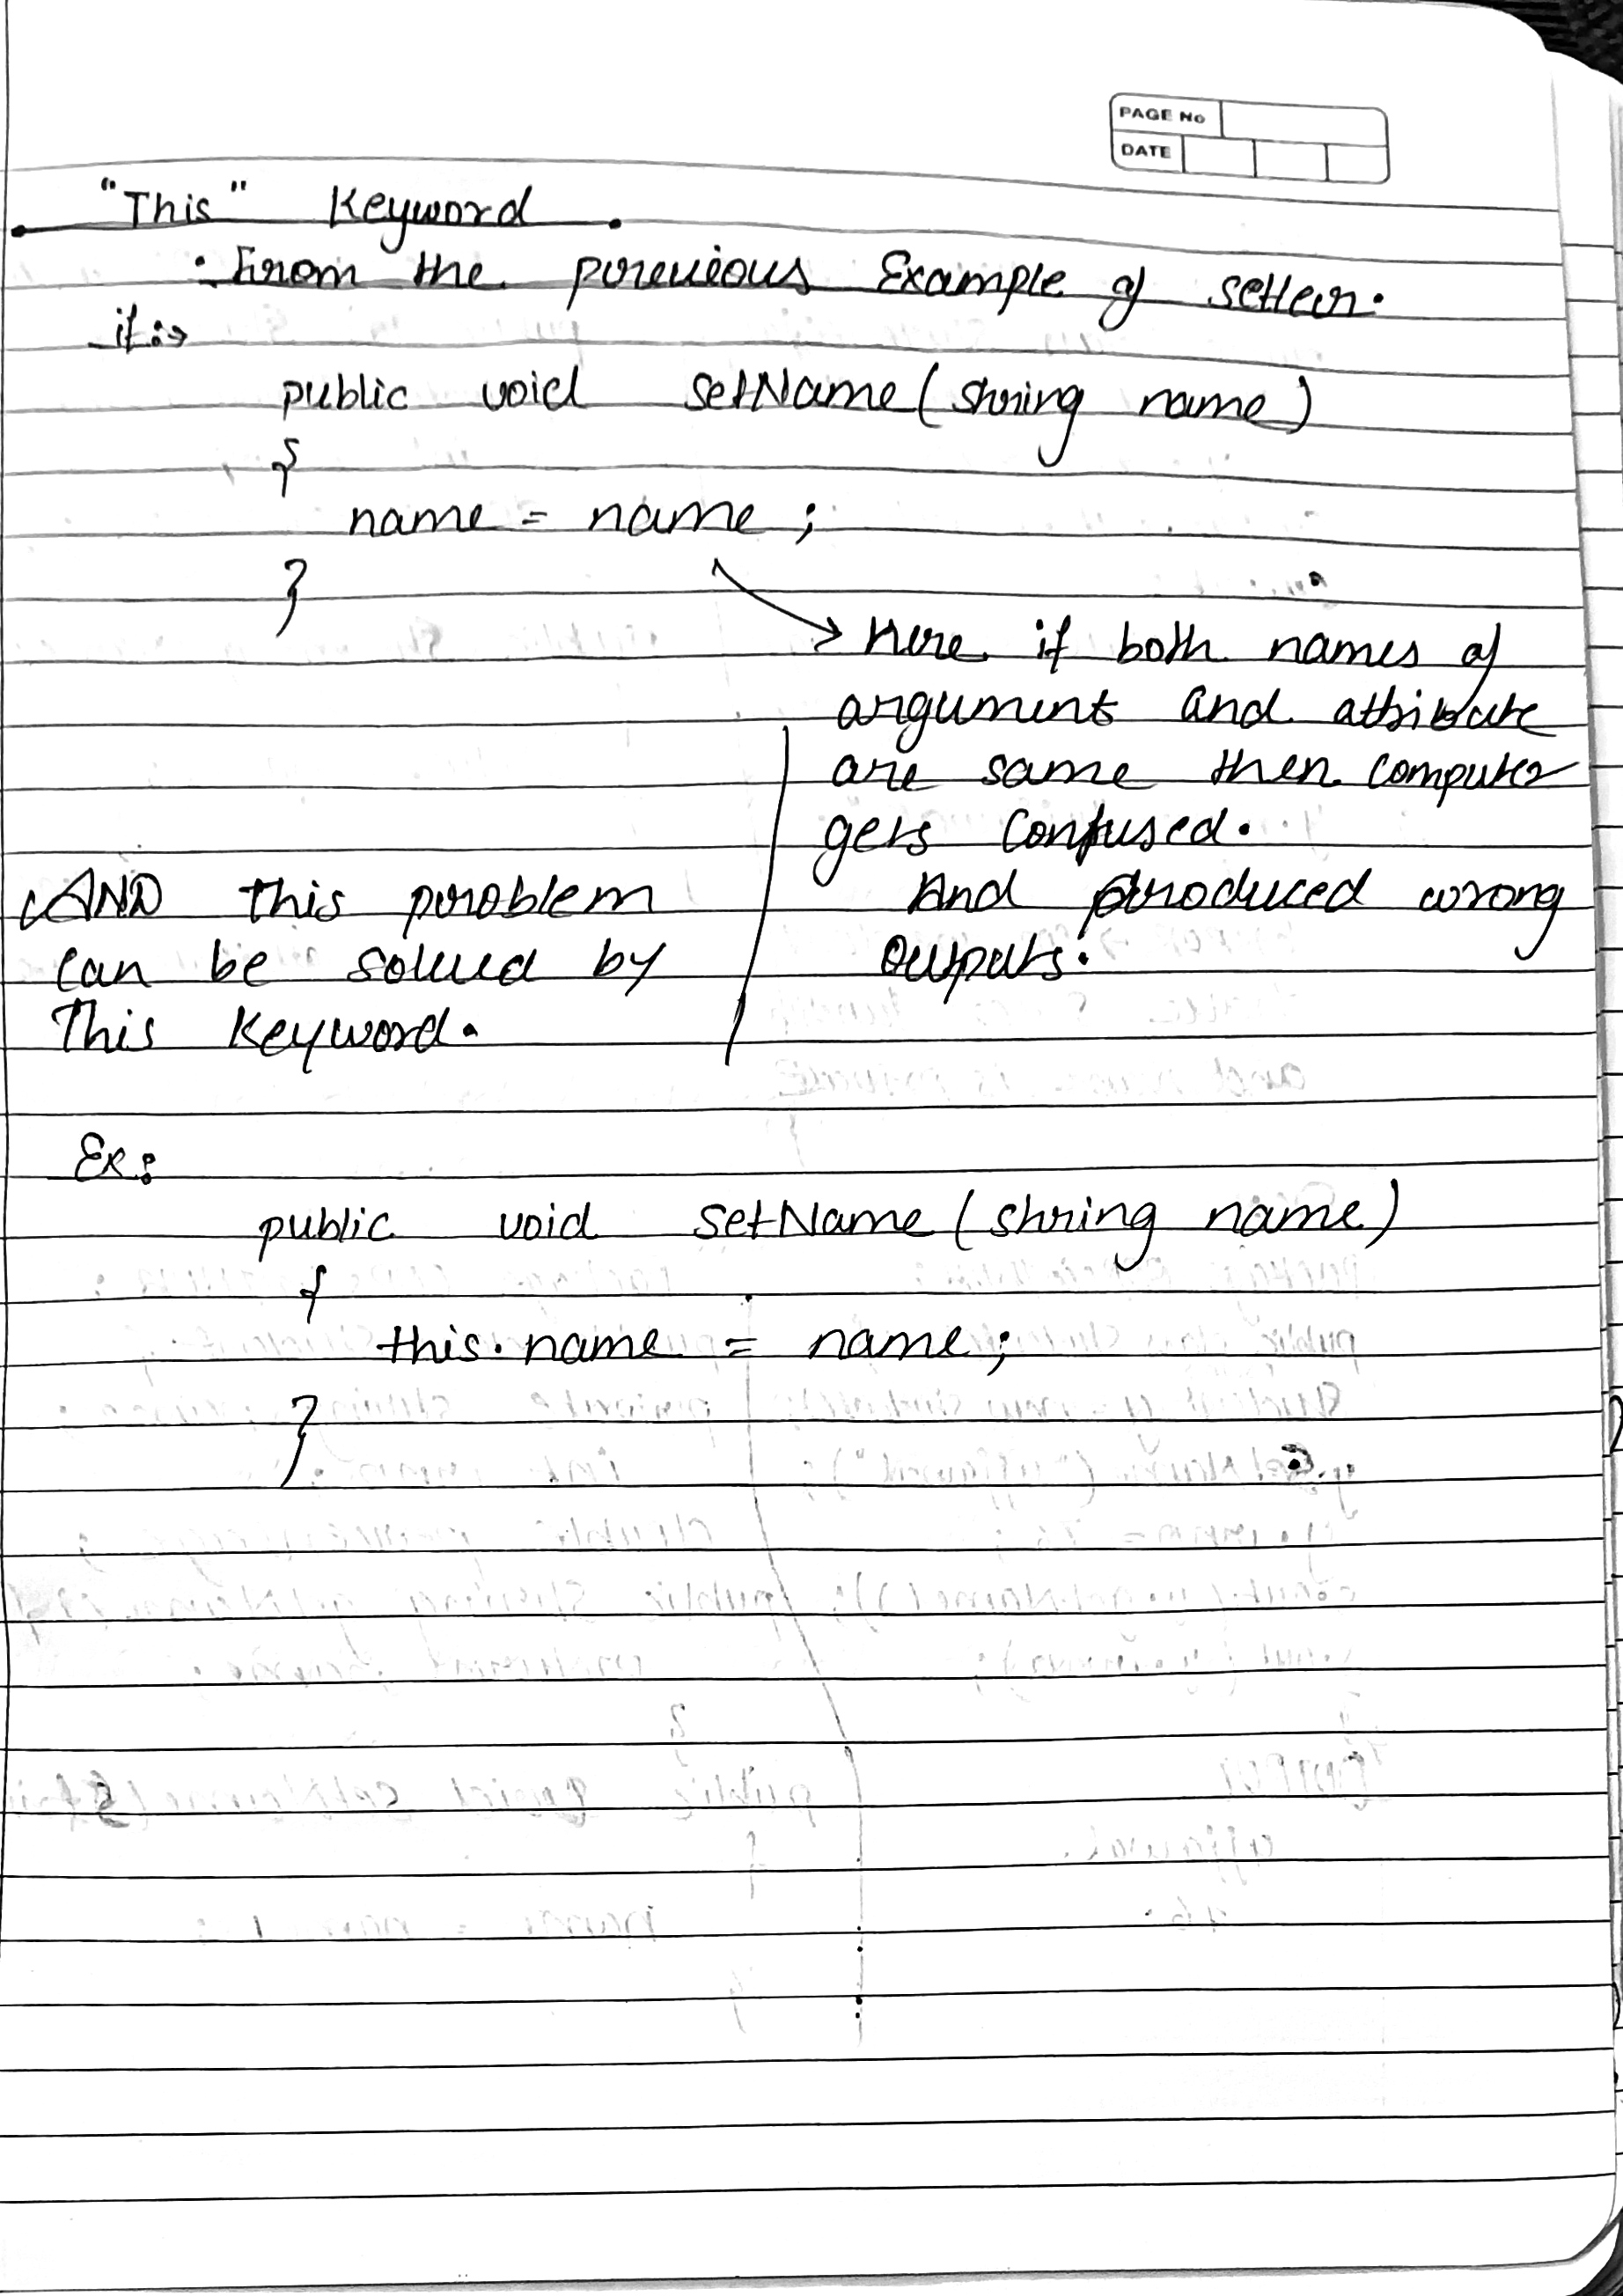 PAGE No
DATE
"This" Keyword.
• From the previous Example of setter.
if :→
public void setName(string name)
{
name = name ;
}
→ Here if both names of
argument and attribute
are same then computer
gets confused.
And produced wrong
outputs.
AND this problem
can be solved by
This Keyword.
Ex:
public void setName (string name)
{
this.name = name;
}